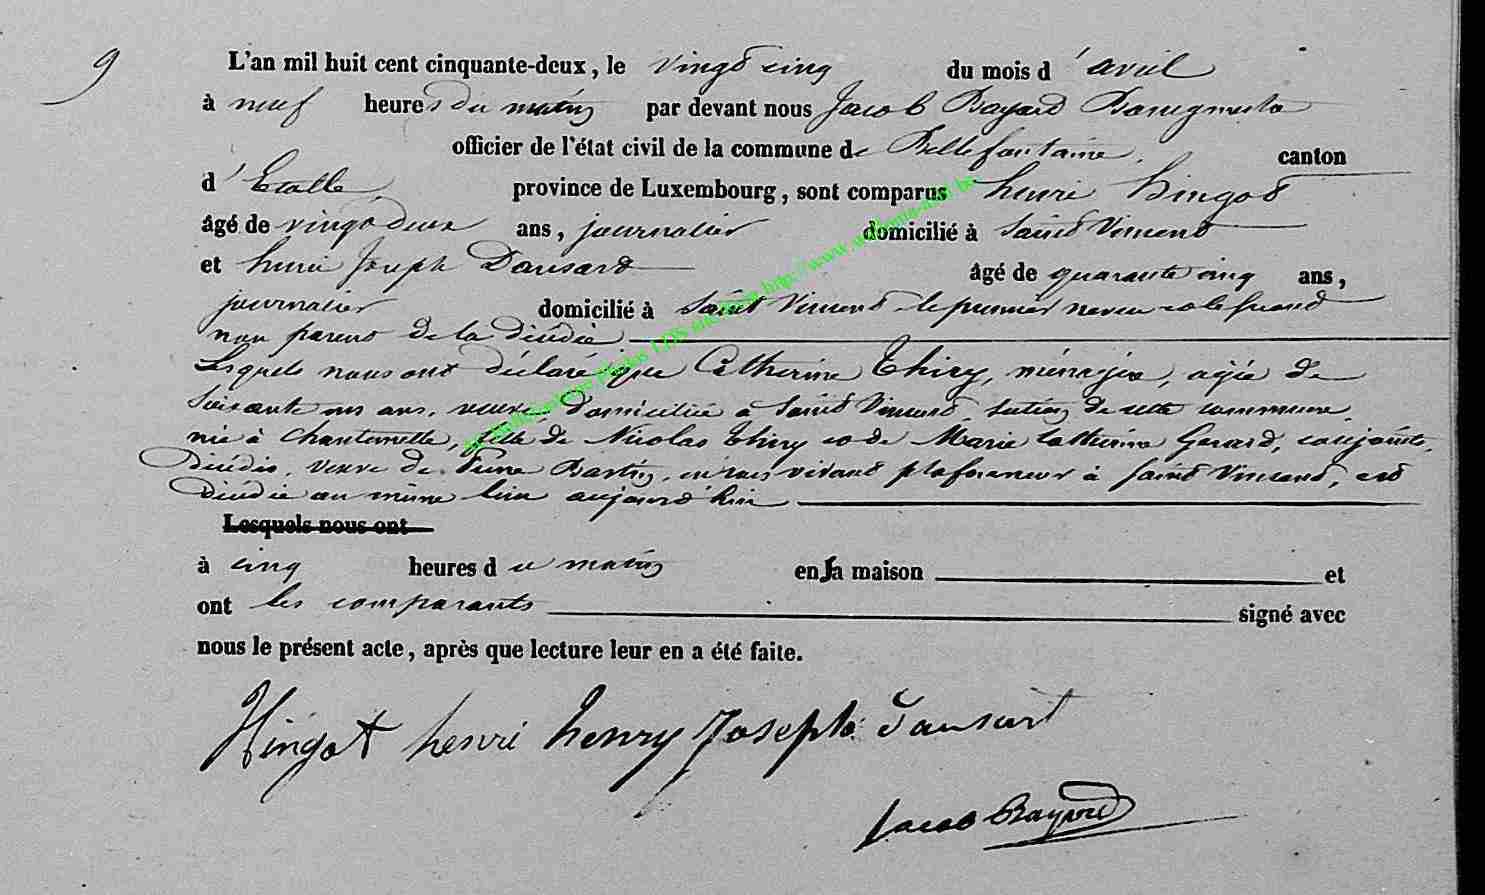 9
L'an mil huit cent cinquante-deux, le vingt cinq du mois d'avril
à neuf heures du matin par devant nous Jacob Bayard Bourgmestre
officier de l'état civil de la commune de Bellefontaine, canton
d'Etalle province de Luxembourg, sont comparus henri hingot
âgé de vingt deux ans, journalier domicilié à Saint Vincent
et henri Joseph Dansard âgé de quarante cinq ans,
journalier domicilié à Saint Vincent le premier neveu et le second
non parent de la décédée
Lesquels nous ont déclaré que Catherine Thiry, ménagère, agée de
ans, veuve domiciliée à Saint Vincent section de cette commune
née à Chantemelle, fille de Nicolas Thiry et de Marie Catherine Gerard, conjoints,
décédés, veuve de Pierre en son vivant plafonneur à Saint Vincent, est
décédée au même lieu aujourd'hui
Lesquels nous ont
à cinq heures du matin en sa maison et
ont les comparants signé avec
nous le présent acte, après que lecture leur en a été faite.
Hingot henri henry Joseph dansart
Jacob Bayard